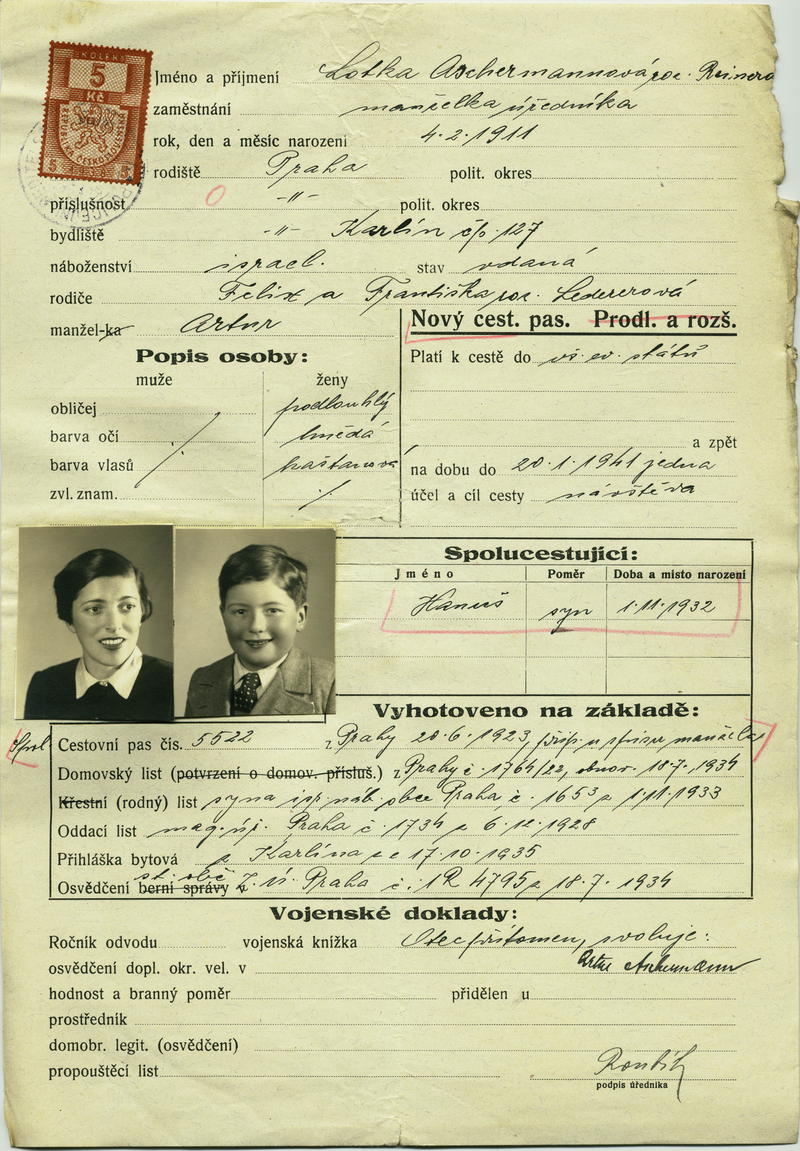 KOLEK
5
Kč
REPUBLIKA ČESKOSLOVENSKÁ
5 1938 5
Jméno a příjmení Lotka Aschermannová roz. Reinerová
zaměstnání manželka úředníka
rok, den a měsíc narození 4.2.1911
rodiště Praha polit. okres
příslušnost 0 -"- polit. okres
bydliště -"- Karlín čp. 127
náboženství israel. stav vdaná
rodiče Felix a Františka roz. Ledererová
manžel-ka Artur
Nový cest. pas. Prodl. a rozš.
Popis osoby:
muže ženy
obličej podlouhlý
barva očí hnědá
barva vlasů kaštanová
zvl. znam. ·/.
Platí k cestě do vš. ev. států
a zpět
na dobu do 20.1.1941 jedna
účel a cíl cesty návštěva
Spolucestující:
Jméno Poměr Doba a místo narození
Hanuš syn 1.11.1932
Vyhotoveno na základě:
Cestovní pas čís. 5522 z Prahy 20.6.1923, manžela
Domovský list (potvrzení o domov. přísluš.) z Prahy č. 1764/22, obnov. 18.7.1934
Křestní (rodný) list syna isr. náb. obce Praha č. 1653 z 1.11.1933
Oddací list mag. úř. Praha č 1734 z 6.12.1928
Přihláška bytová z Karlína ze 17.10.1935
st. obč.
Osvědčení berní správy z. Z. ú. Praha č. 1R 4795 z 18.7.1934
Vojenské doklady:
Ročník odvodu vojenská knížka Otec přítomen, svoluje:
osvědčení dopl. okr. vel. v Artur Aschermann
hodnost a branný poměr přidělen u
prostředník
domobr. legit. (osvědčení)
propouštěcí list
podpis úředníka